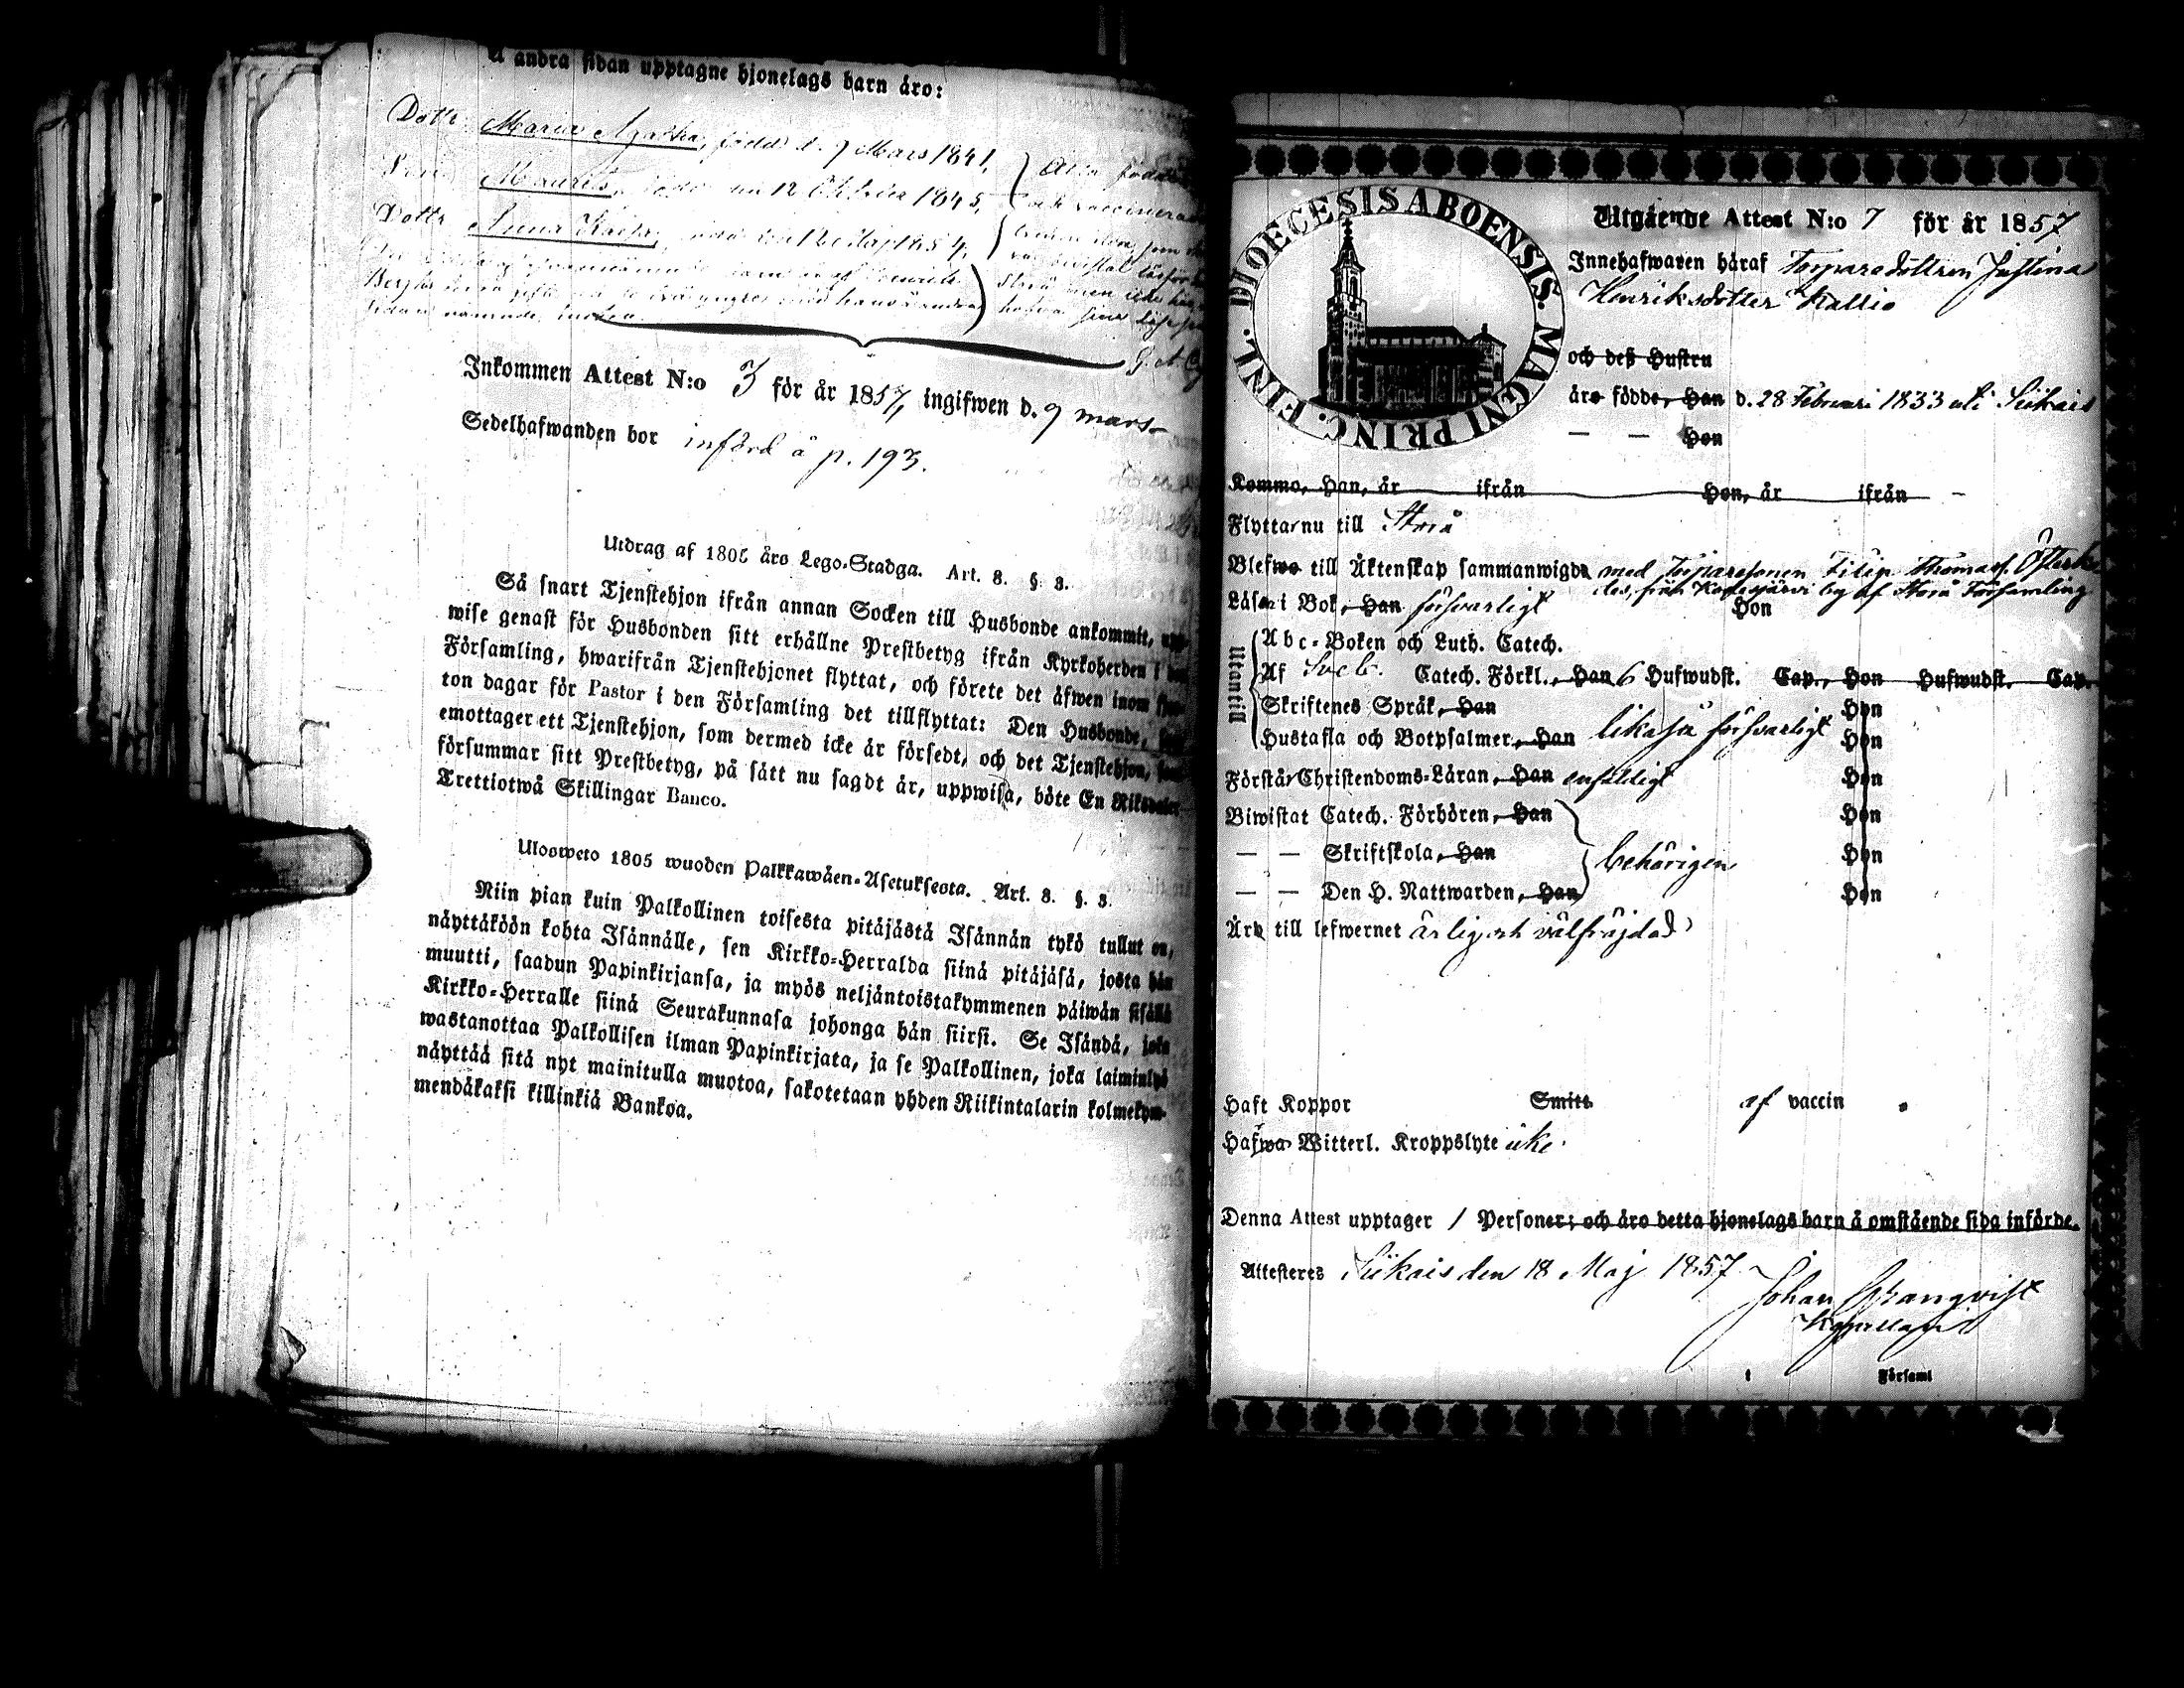 Å andra sidan upptagne hjonelags barn äro:
Dottr. Maria Agatha, född d. 9 Mars 1841,
Maurits, den 12 Oktober 1845,
Dottr. Anna Kaisa,
Inkommen Attest N:o 3 för år 1857, ingifwen d. 9 mars
Sedelhafwanden bor införd å p. 193.
Utdrag af 1805 års Lego-Stadga. Art. 8. §. 3.
Så snart Tjenstehjon ifrån annan Socken till Husbonde ankommit, upp-
wise genast för Husbonden sitt erhållne Prestbetyg ifrån Kyrkoherden i den
Församling, hwarifrån Tjenstehjonet flyttat, och förete det äfwen inom fjor-
ton dagar för Pastor i den Församling det tillflyttat: Den Husbonde, som
emottager ett Tjenstehjon, som dermed icke är försedt, och det Tjenstehjon, som
försummar sitt Prestbetyg, på sätt nu sagdt är, uppwisa, böte En Riksdaler
Trettiotwå Skillingar Banco.
Ulosweto 1805 wuoden Palkkawäen-Asetuksesta. Art. 8. §. 3.
Niin pian kuin Palkollinen toisesta pitäjästä Isännän tykö tullut on,
näyttäköön kohta Isännälle, sen Kirkko-Herralda siinä pitäjäsä, josta hän
muutti, saadun Papinkirjansa, ja myös neljäntoistakymmenen päiwän sisällä
Kirkko-Herralle siinä Seurakunnasa johonga hän siirsi. Se Isändä, joka
wastanottaa Palkollisen ilman Papinkirjata, ja se Palkollinen, joka laiminlyö
näyttää sitä nyt mainitulla muotoa, sakotetaan yhden Riikintalarin kolmekym-
mendäkaksi killinkiä Bankoa.
DIOECESIS ABOENSIS. MAGNI PRINC. FINL.
Utgående Attest N:o 7 för år 1857
Innehafwaren häraf Torparedottren Justina
Henriksdotter Kallio
och deß Hustru
äro födde, Han d. 28 Februari 1833 uti Siikais
— — Hon
Komme, Han, år ifrån Hon, år ifrån
Flyttar nu till Storå
Blefwo till Äktenskap sammanwigde med Torparesonen Filip Thomass. Österke
des, från Kodesjärvi by af Storå Församling
Läsa i Bok, Han försvarligt Hon
Utantill
Abc-Boken och Luth. Catech.
Af Sveb. Catech. Förkl., Han 6 Hufwudst. Cap., Hon Hufwudst. Cap.
Skriftenes Språk, Han Hon
Hustafla och Botpsalmer, Han likaså försvarligt Hon
Förstår Christendoms-Läran, Han enfaldigt Hon
Biwistat Catech. Förhören, Han Hon
— — Skriftskola, Han behörigen Hon
— — Den H. Nattwarden, Han Hon
Äro till lefwernet ärlig och välfräjdad
Haft Koppor Smitt af vaccin
Hafwa Witterl. Kroppslyte icke
Denna Attest upptager 1 Personer; och äro detta hjonelags barn å omstående sida införde.
Attesteres Siikais den 18 Maj 1857.
Johan Granqvist
Kapellan
i Församl